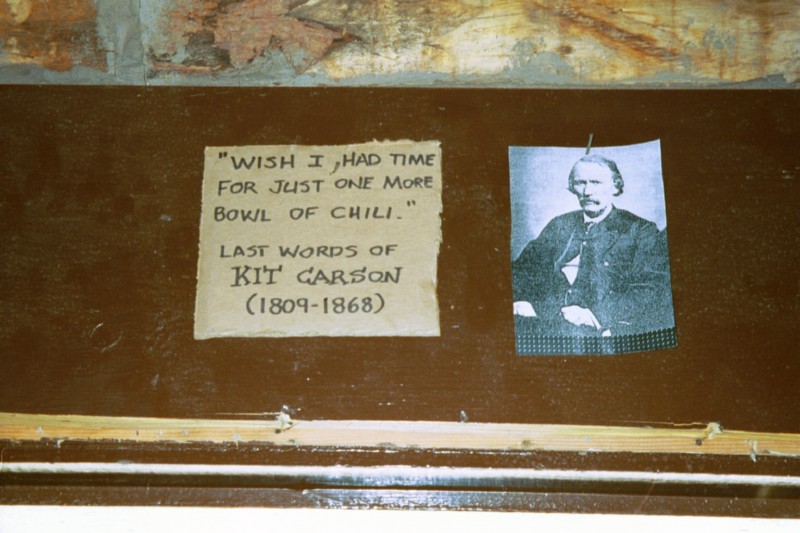 "WISH I, HAD TIME
FOR JUST ONE MORE
BOWL OF CHILI."
LAST WORDS OF
KIT CARSON
(1809-1868)